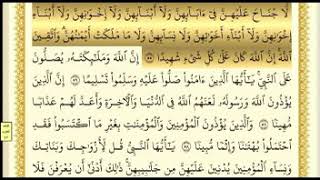 لَّا جُنَاحَ عَلَيْهِنَّ فِىٓ ءَابَآئِهِنَّ وَلَآ أَبْنَآئِهِنَّ وَلَآ إِخْوَٰنِهِنَّ وَلَآ أَبْنَآءِ
إِخْوَٰنِهِنَّ وَلَآ أَبْنَآءِ أَخَوَٰتِهِنَّ وَلَا نِسَآئِهِنَّ وَلَا مَا مَلَكَتْ أَيْمَٰنُهُنَّ وَٱتَّقِينَ
ٱللَّهَ إِنَّ ٱللَّهَ كَانَ عَلَىٰ كُلِّ شَىْءٍ شَهِيدًا ۝ إِنَّ ٱللَّهَ وَمَلَٰٓئِكَتَهُۥ يُصَلُّونَ
عَلَى ٱلنَّبِىِّ يَٰٓأَيُّهَا ٱلَّذِينَ ءَامَنُوا۟ صَلُّوا۟ عَلَيْهِ وَسَلِّمُوا۟ تَسْلِيمًا ۝ إِنَّ ٱلَّذِينَ
يُؤْذُونَ ٱللَّهَ وَرَسُولَهُۥ لَعَنَهُمُ ٱللَّهُ فِى ٱلدُّنْيَا وَٱلْءَاخِرَةِ وَأَعَدَّ لَهُمْ عَذَابًا
مُّهِينًا ۝ وَٱلَّذِينَ يُؤْذُونَ ٱلْمُؤْمِنِينَ وَٱلْمُؤْمِنَٰتِ بِغَيْرِ مَا ٱكْتَسَبُوا۟ فَقَدِ
ٱحْتَمَلُوا۟ بُهْتَٰنًا وَإِثْمًا مُّبِينًا ۝ يَٰٓأَيُّهَا ٱلنَّبِىُّ قُل لِّأَزْوَٰجِكَ وَبَنَاتِكَ
وَنِسَآءِ ٱلْمُؤْمِنِينَ يُدْنِينَ عَلَيْهِنَّ مِن جَلَٰبِيبِهِنَّ ذَٰلِكَ أَدْنَىٰٓ أَن يُعْرَفْنَ فَلَا